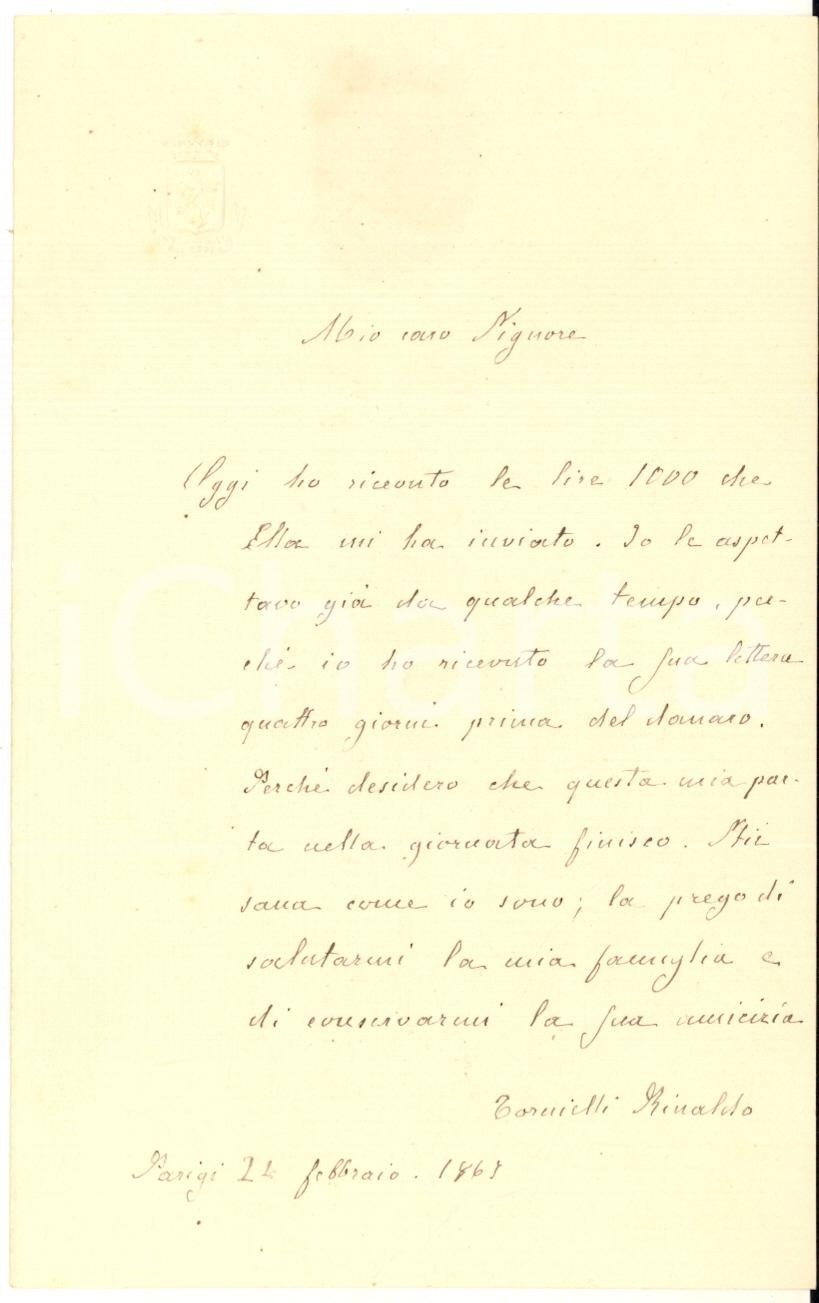 Mio caro Signore
Oggi ho ricevuto le lire 1000 che
Ella mi ha inviato. Io le aspet-
tavo già da qualche tempo, per-
chè io ho ricevuto la sua lettera
quattro giorni prima del danaro.
Perchè desidero che questa mia par-
ta nella giornata finisco. Stii
sana come io sono; la prego di
salutarmi la mia famiglia e
di conservarmi la sua amicizia
Tornielli Rinaldo
Parigi febbraio.
iCharta